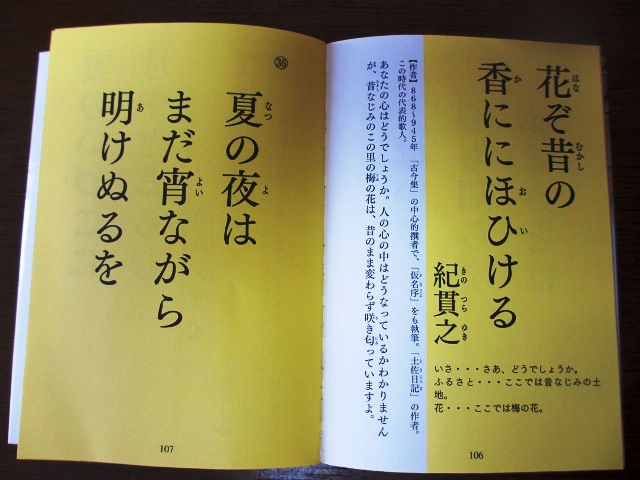 はな むかし
花ぞ昔の
か おい
香ににほひける
きの つら ゆき
紀貫之
いさ・・・さあ、どうでしょうか。
ふるさと・・・ここでは昔なじみの土
地。
花・・・ここでは梅の花。
【作者】868〜945年 「古今集」の中心的撰者で、「仮名序」をも執筆。「土佐日記」の作者。
この時代の代表的歌人。
あなたの心はどうでしょうか。人の心の中はどうなっているかわかりません
が、昔なじみのこの里の梅の花は、昔のまま変わらず咲き匂っていますよ。
106
㊱
なつ よ
夏の夜は
よい
まだ宵ながら
あ
明けぬるを
107